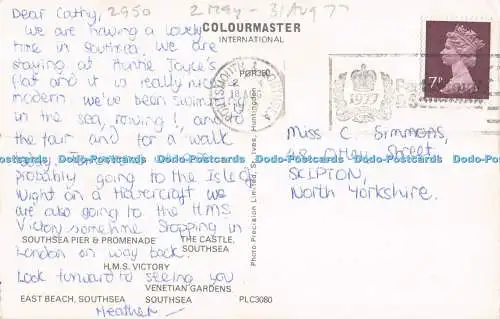 Dear Cathy, 2950 2 May - 31 Aug 77
We are having a lovely
time in Southsea. We are
staying at Auntie Joyce's
flat and it is really nice
modern, we've been swimming
in the sea, rowing! , and to
the fair and for a walk
probably going to the Isle of
Wight on a Hovercraft we
are also going to the H.M.S.
Victory sometime. Stopping in
London on way back.
Look forward to seeing you
Heather
COLOURMASTER
INTERNATIONAL
POR390
PORTSMOUTH
1977
7P
Miss C Simmons,
Street,
SKIPTON,
North Yorkshire.
Photo Precision Limited, St. Ives, Huntingdon
Dodo-Postcards Dodo-Postcards Dodo-Postcards Dodo-Postcards Dodo-Postcards Dodo-Postcards
SOUTHSEA PIER & PROMENADE THE CASTLE,
SOUTHSEA
H.M.S. VICTORY
VENETIAN GARDENS
EAST BEACH, SOUTHSEA SOUTHSEA PLC3080